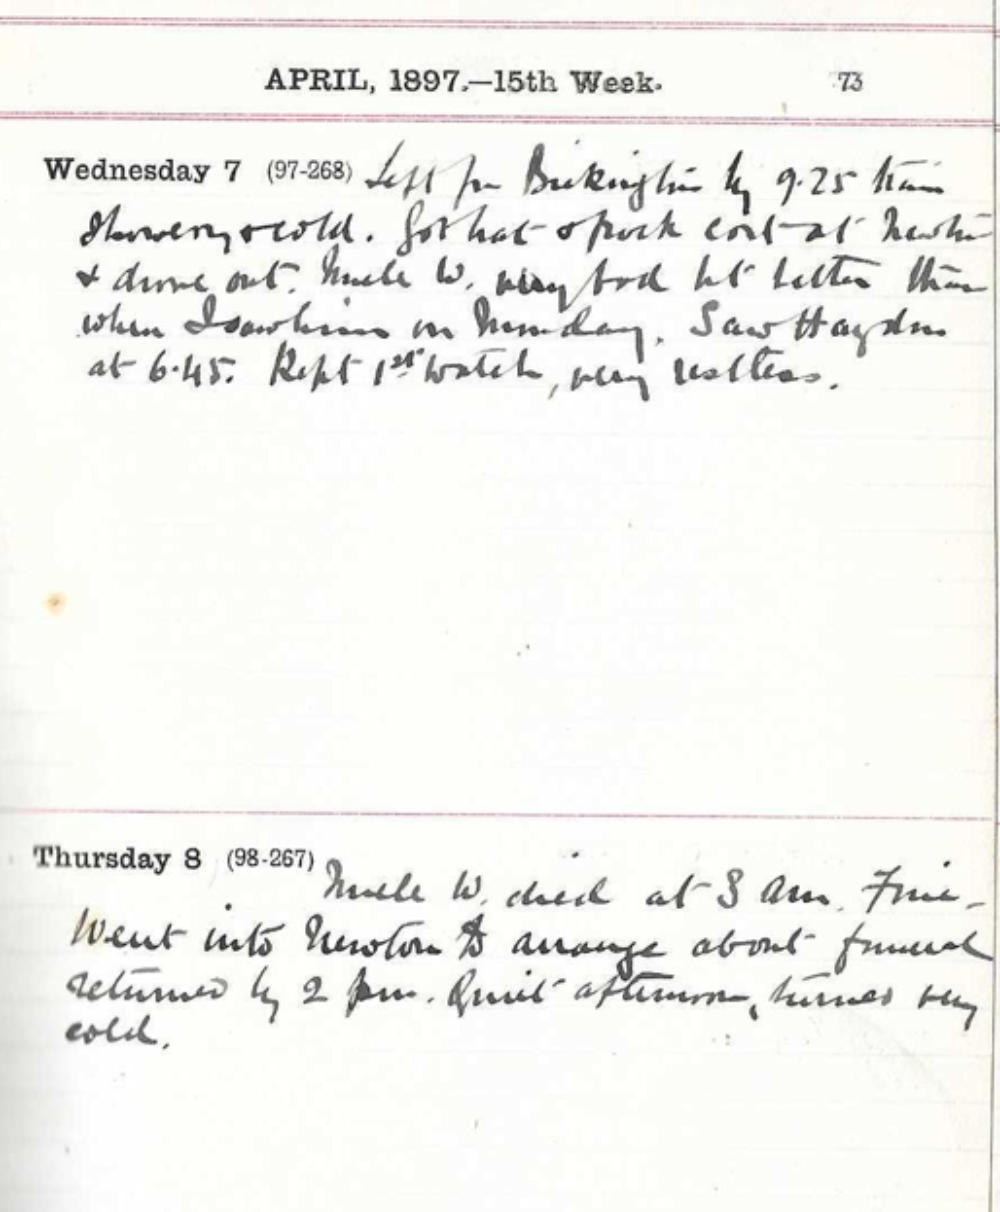 APRIL, 1897.—15th Week. 73
Wednesday 7 (97-268) Left for Bickington by 9.25 train
showery & cold. Got hat & frock coat at Newton
& drove out. Uncle W. very bad but better than
when I saw him on Monday. Saw Haydon
at 6.45. Kept 1st watch, very restless.
Thursday 8 (98-267)
Uncle W. died at 3 am. Fine -
Went into Newton to arrange about funeral
returned by 2 pm. Quiet afternoon, turned very
cold.